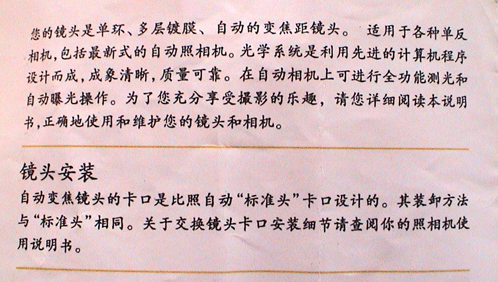 您的镜头是单环、多层镀膜、自动的变焦距镜头。 适用于各种单反
相机,包括最新式的自动照相机。光学系统是利用先进的计算机程序
设计而成,成象清晰,质量可靠。在自动相机上可进行全功能测光和
自动曝光操作。为了您充分享受撮影的乐趣，请您详细阅读本说明
书,正确地使用和维护您的镜头和相机。
镜头安装
自动变焦镜头的卡口是比照自动“标准头”卡口设计的。其装卸方法
与“标准头”相同。关于交换镜头卡口安装细节请查阅你的照相机使
用说明书。